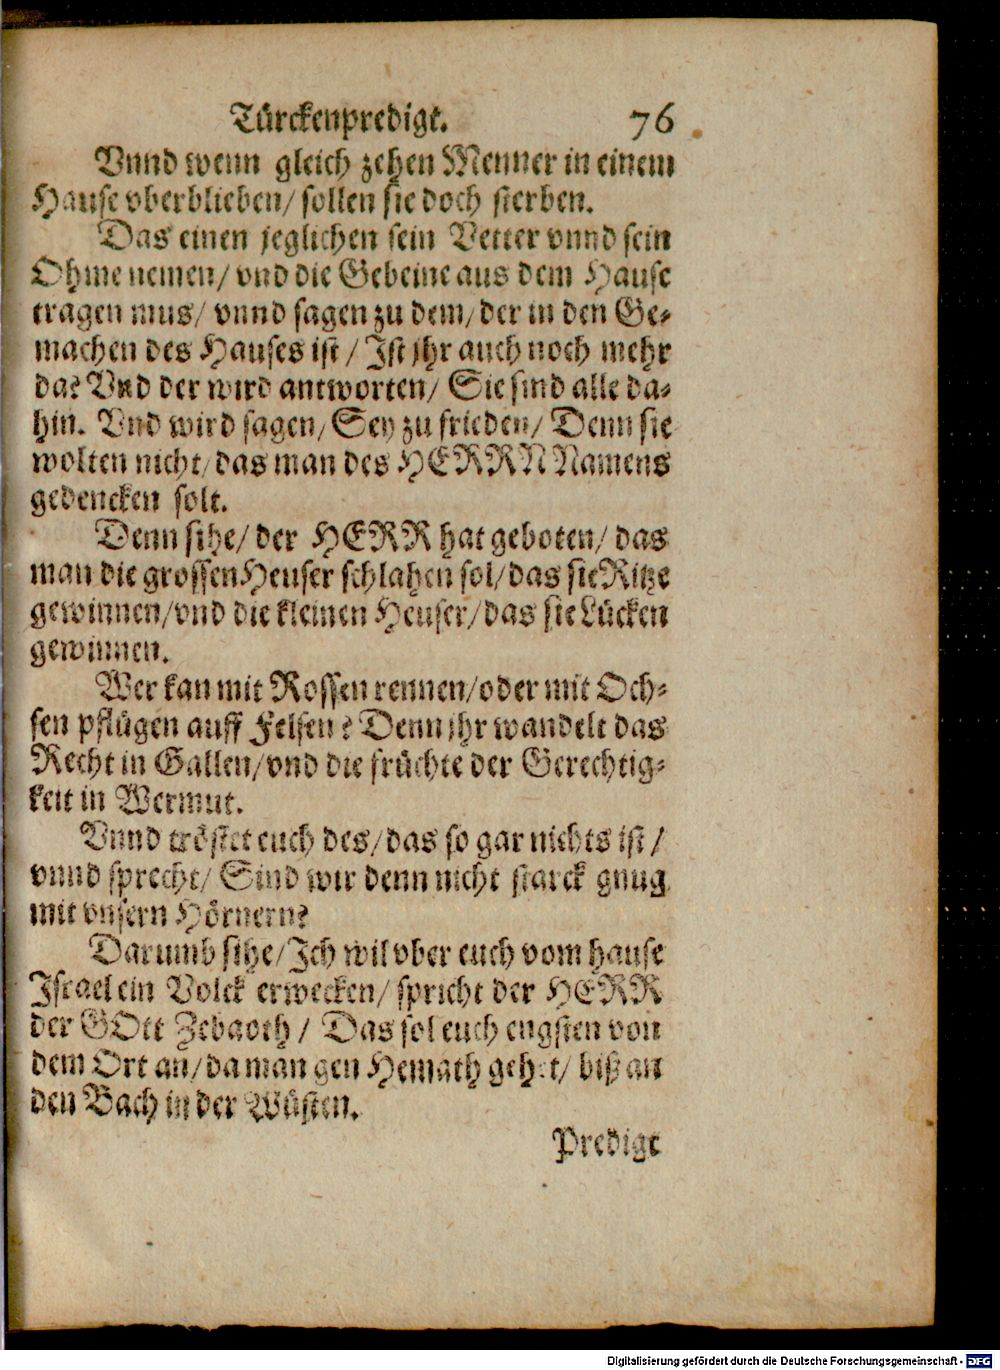 Türckenpredigt. 76
Vnnd wenn gleich zehen Menner in einem
Hause vberblieben/ sollen sie doch sterben.
Das einen jeglichen sein Vetter vnnd sein
Ohme nemen/ vnd die Gebeine aus dem Hause
tragen mus/ vnnd sagen zu dem/ der in den Ge-
machen des Hauses ist/ Ist jhr auch noch mehr
da? Vnd der wird antworten/ Sie sind alle da-
hin. Vnd wird sagen/ Sey zu frieden/ Denn sie
wolten nicht/ das man des HERRN Namens
gedencken solt.
Denn sihe/ der HERR hat geboten/ das
man die grossen Heuser schlahen sol/ das sie Ritze
gewinnen/ vnd die kleinen Heuser/ das sie Lücken
gewinnen.
Wer kan mit Rossen rennen/ oder mit Och-
sen pflügen auff Felsen? Denn jhr wandelt das
Recht in Gallen/ vnd die früchte der Gerechtig-
keit in Wermut.
Vnnd tröstet euch des/ das so gar nichts ist/
vnnd sprecht/ Sind wir denn nicht starck gnug
mit vnsern Hörnern?
Darumb sihe/ Ich wil vber euch vom hause
Israel ein Volck erwecken/ spricht der HERR
der GOtt Zebaoth/ Das sol euch engsten von
dem Ort an/ da man gen Hemath gehet/ biß an
den Bach in der Wüsten.
Predigt
Digitalisierung gefördert durch die Deutsche Forschungsgemeinschaft - DFG